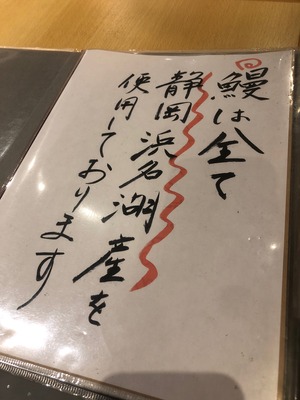 鰻は全て
静岡浜名湖産を
使用しております